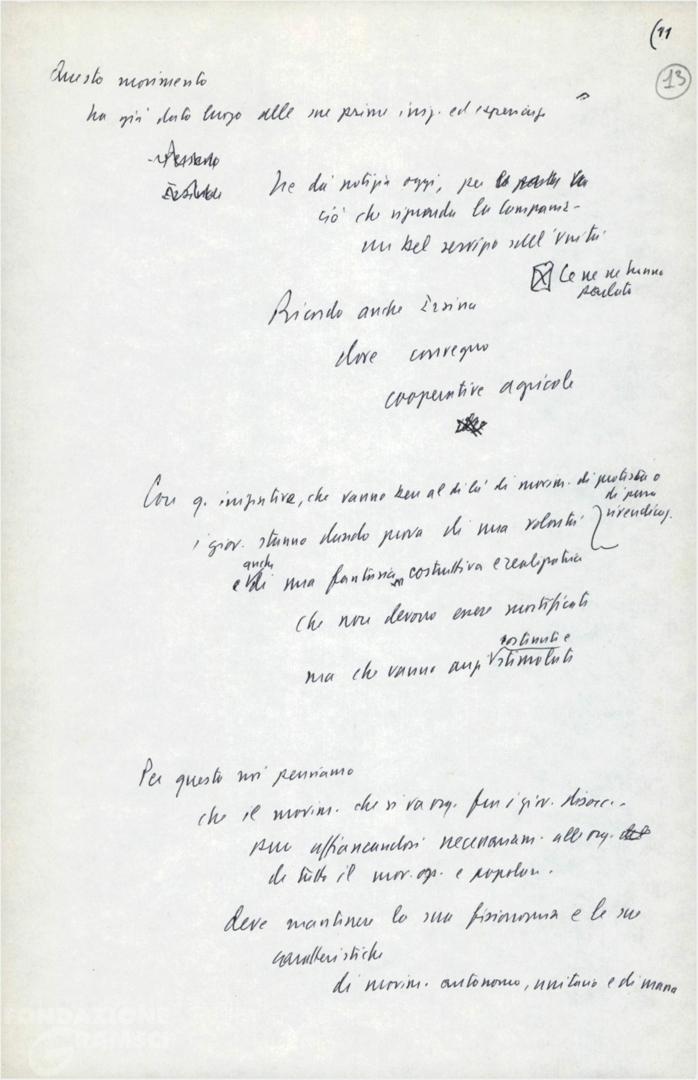 (11
13
Questo movimento
ha già dato luogo alle sue prime iniz. ed esperienze
Ne dà notizia oggi, per
ciò che riguarda la Campania -
un bel servizio dell'Unità
Ce ne ne hanno
parlato
Ricordo anche Irsina
dove convegno
cooperative agricole
Con q. iniziative, che vanno ben al di là di movim. di protesta o
di pura
rivendicaz.
i giov. stanno dando prova di una volontà
anche
e di una fantasia costruttiva e realizzatrice
che non devono essere mortificati
sostenuti e
ma che vanno anzi stimolati
Per questo noi pensiamo
che il movim. che si va org. fra i giov. disocc. -
pur affiancandosi necessariam. alle org.
di tutto il mov. op. e popolare.
deve mantenere la sua fisionomia e le sue
caratteristiche
di movim. autonomo, unitario e di massa
FONDAZIONE
GRAMSCI